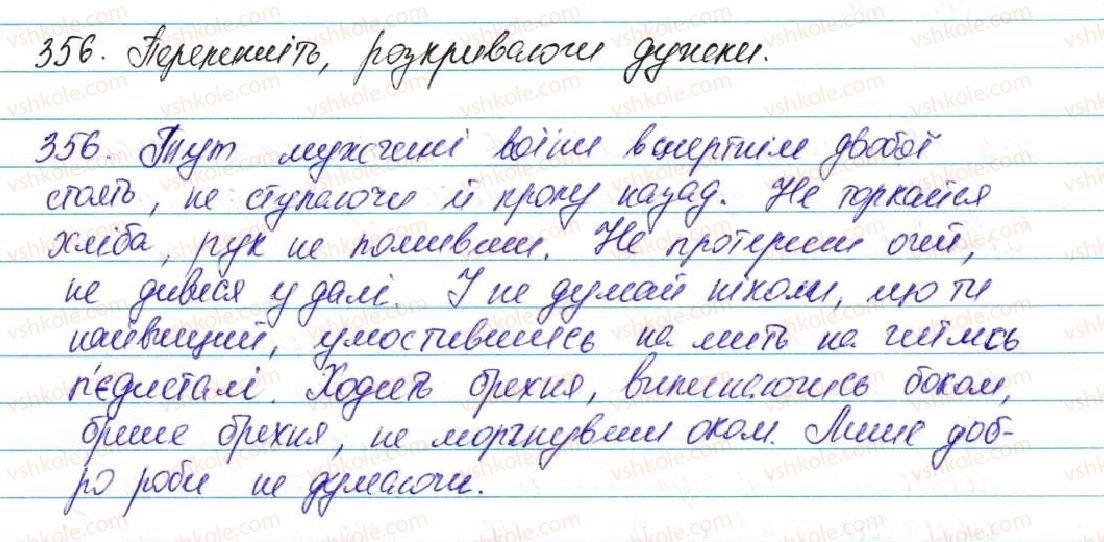 356. Перепишіть, розкриваючи дужки.
356. Тут мужчині воїни в смертнім двобої
стоять, не ступаючи й кроку назад. Не торкайся
хліба, рук не помивши. Не протерши очей,
не дивися у далі. І не думай ніколи, що ти
найвищий, умостившись на мить на чиїмсь
п'єдесталі. Ходить брехня, випинаючись боком,
бреше брехня, не моргнувши оком. Лише доб-
ро роби не думаючи.